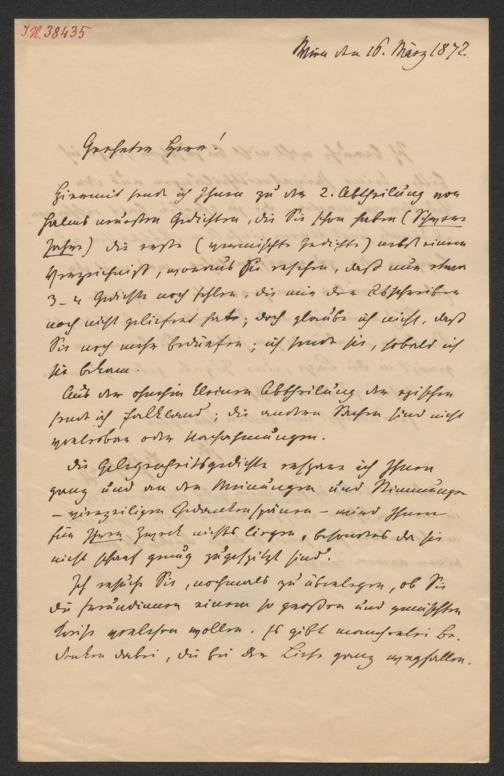 I.N. 38435
Wien den 16. März 1872.
Geehrter Herr!
Hiermit sende ich Ihnen zu der 2. Abtheilung von
Halms neuesten Gedichten, die Sie schon haben (Schwere
Jahre) die erste (vermischte Gedichte) nebst einem
Verzeichniß, woraus Sie ersehen, daß nun etwa
3-4 Gedichte noch fehlen, die mir der Abschreiber
noch nicht geliefert hat; doch glaube ich nicht, daß
Sie noch mehr bedürfen; ich sende sie, sobald ich
sie bekam.
Aus der ohnehin kleinen Abtheilung der epischen
sende ich Falkland; die andern Sachen sind nicht
oder Nachahmungen.
Die Gelegenheitsgedichte erspare ich Ihnen
ganz und an den Meinungen und Stimmungen
- vierzeiligen Gedankenspänen - wird Ihnen
für Ihren Zweck nichts liegen, besonders da sie
nicht scharf genug zugespitzt sind.
Ich ersuche Sie, nochmals zu überlegen, ob Sie
die Freundinnen einem so großen und gemischten
Kreise vorlesen wollen. Es gibt mancherlei Be-
denken dabei, die bei der Liebe ganz wegfallen.